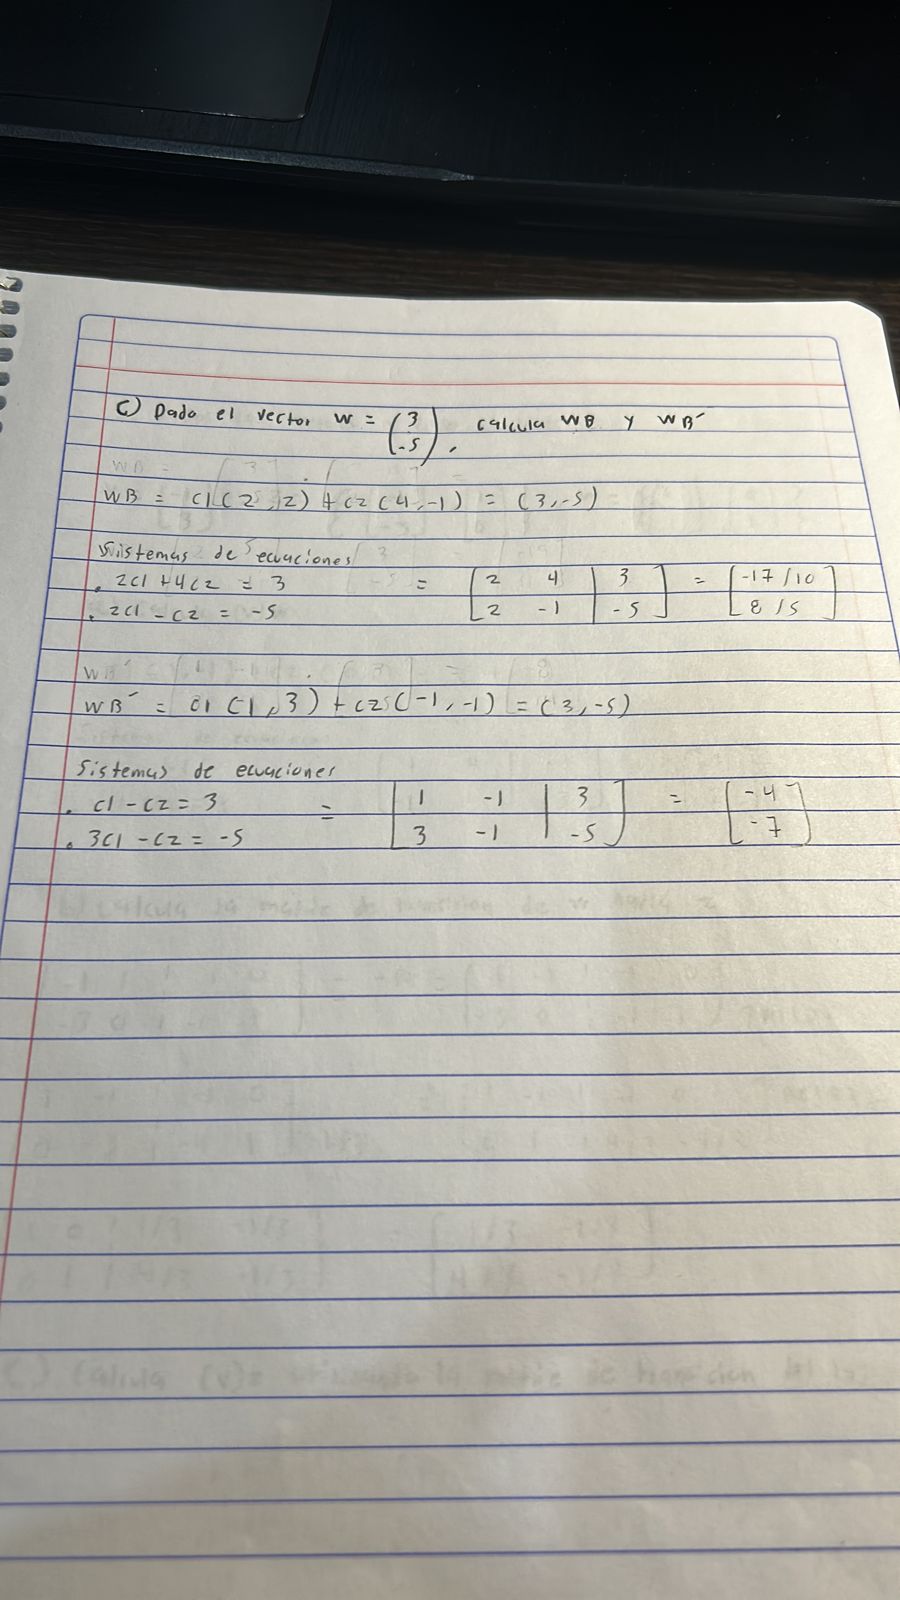 C) Dado el vector W = (3
-5), calcula WB y WB´
WB = c1(2,2) + c2(4,-1) = (3,-5)
Sistemas de ecuaciones
. 2c1 + 4c2 = 3 = [2 4 | 3 = [-17/10
. 2c1 - c2 = -5 2 -1 | -5] 8/5]
WB´ = c1(1,3) + c2(-1,-1) = (3,-5)
Sistemas de ecuaciones
. c1 - c2 = 3 = [1 -1 | 3 = [-4
. 3c1 - c2 = -5 3 -1 | -5] -7]